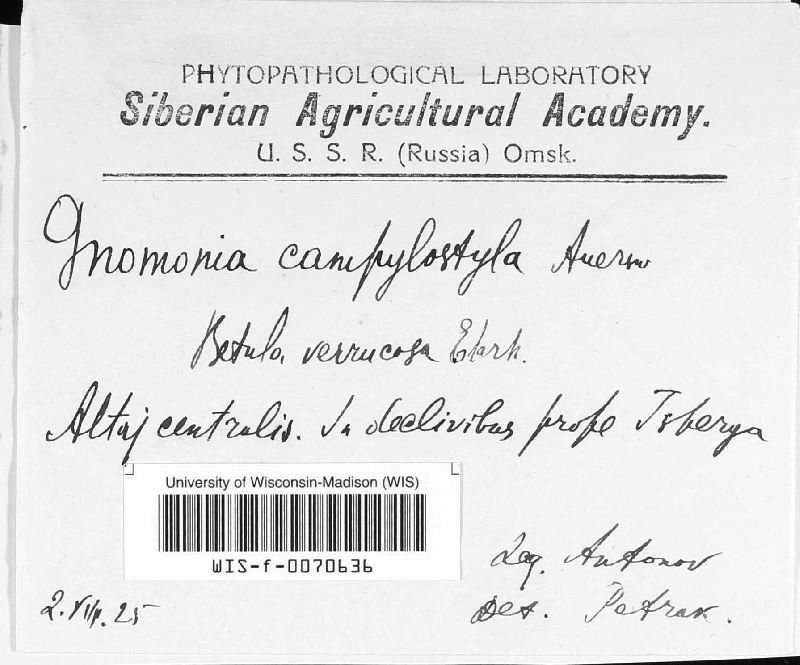 PHYTOPATHOLOGICAL LABORATORY
Siberian Agricultural Academy.
U. S. S. R. (Russia) Omsk.
Gnomonia campylostyla Auersw
Betula verrucosa Ehrh.
Altaj centralis. In declivibus prope
University of Wisconsin-Madison (WIS)
WIS-f-0070636
Leg. Antonov
2.VIII.25
Det. Petrak.